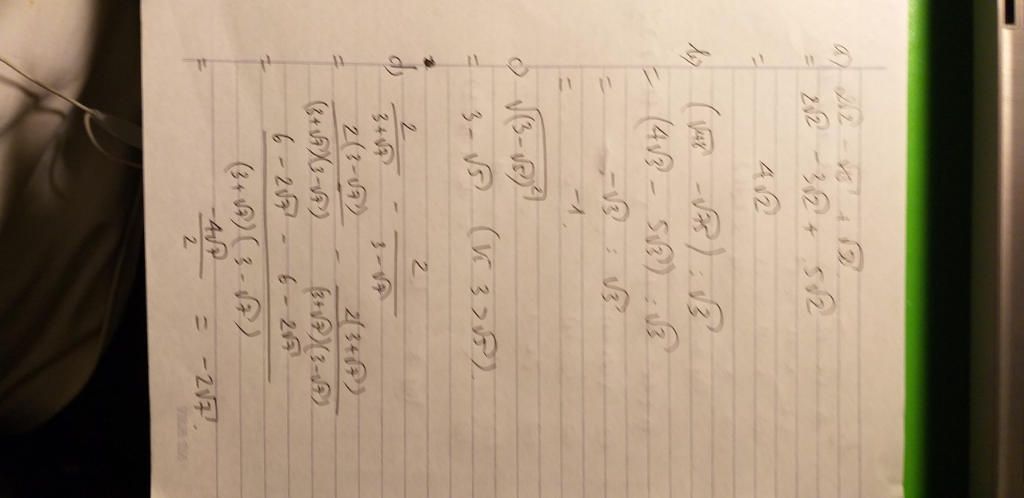 a) 2√2 - √18 + √50
= 2√2 - 3√2 + 5√2
= 4√2
b) (√48 - √75) : √3
= (4√3 - 5√3) : √3
= -√3 : √3
= -1.
c) √(3-√5)²
= 3 - √5 (vì 3 > √5).
d) 2/(3+√7) - 2/(3-√7)
= 2(3-√7)/((3+√7)(3-√7)) - 2(3+√7)/((3+√7)(3-√7))
= (6 - 2√7 - 6 - 2√7)/((3+√7)(3-√7))
= -4√7/2 = -2√7.